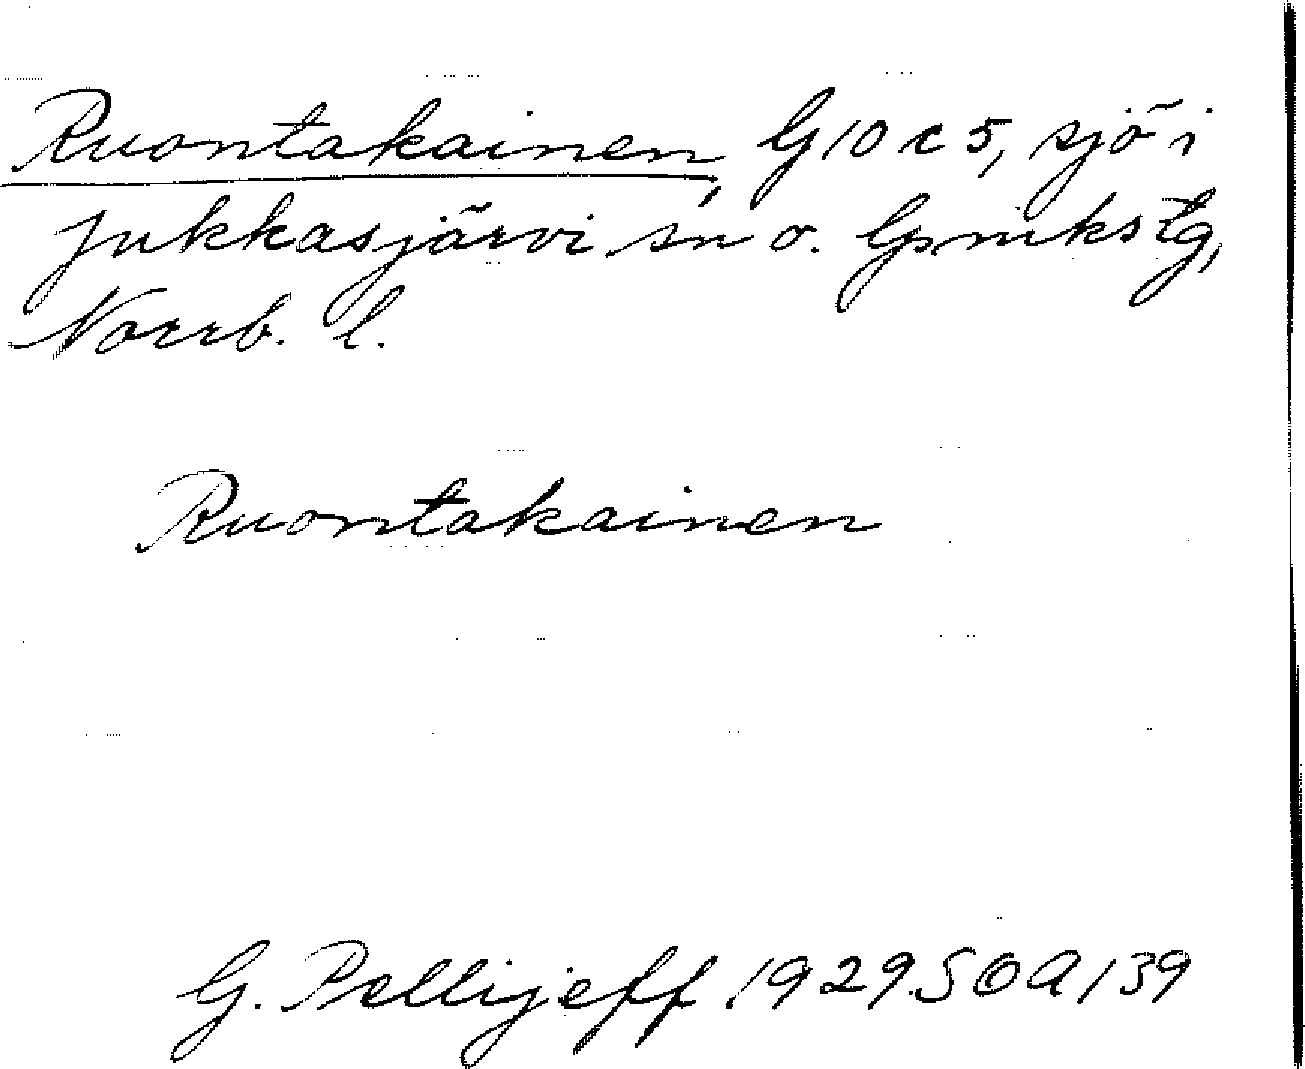 Ruontakainen, G 10 c 5, sjö i
Jukkasjärvi sn o. Gmikstg,
Norrb. l.
Ruontakainen
G. Pellijeff 1929. SOA 139